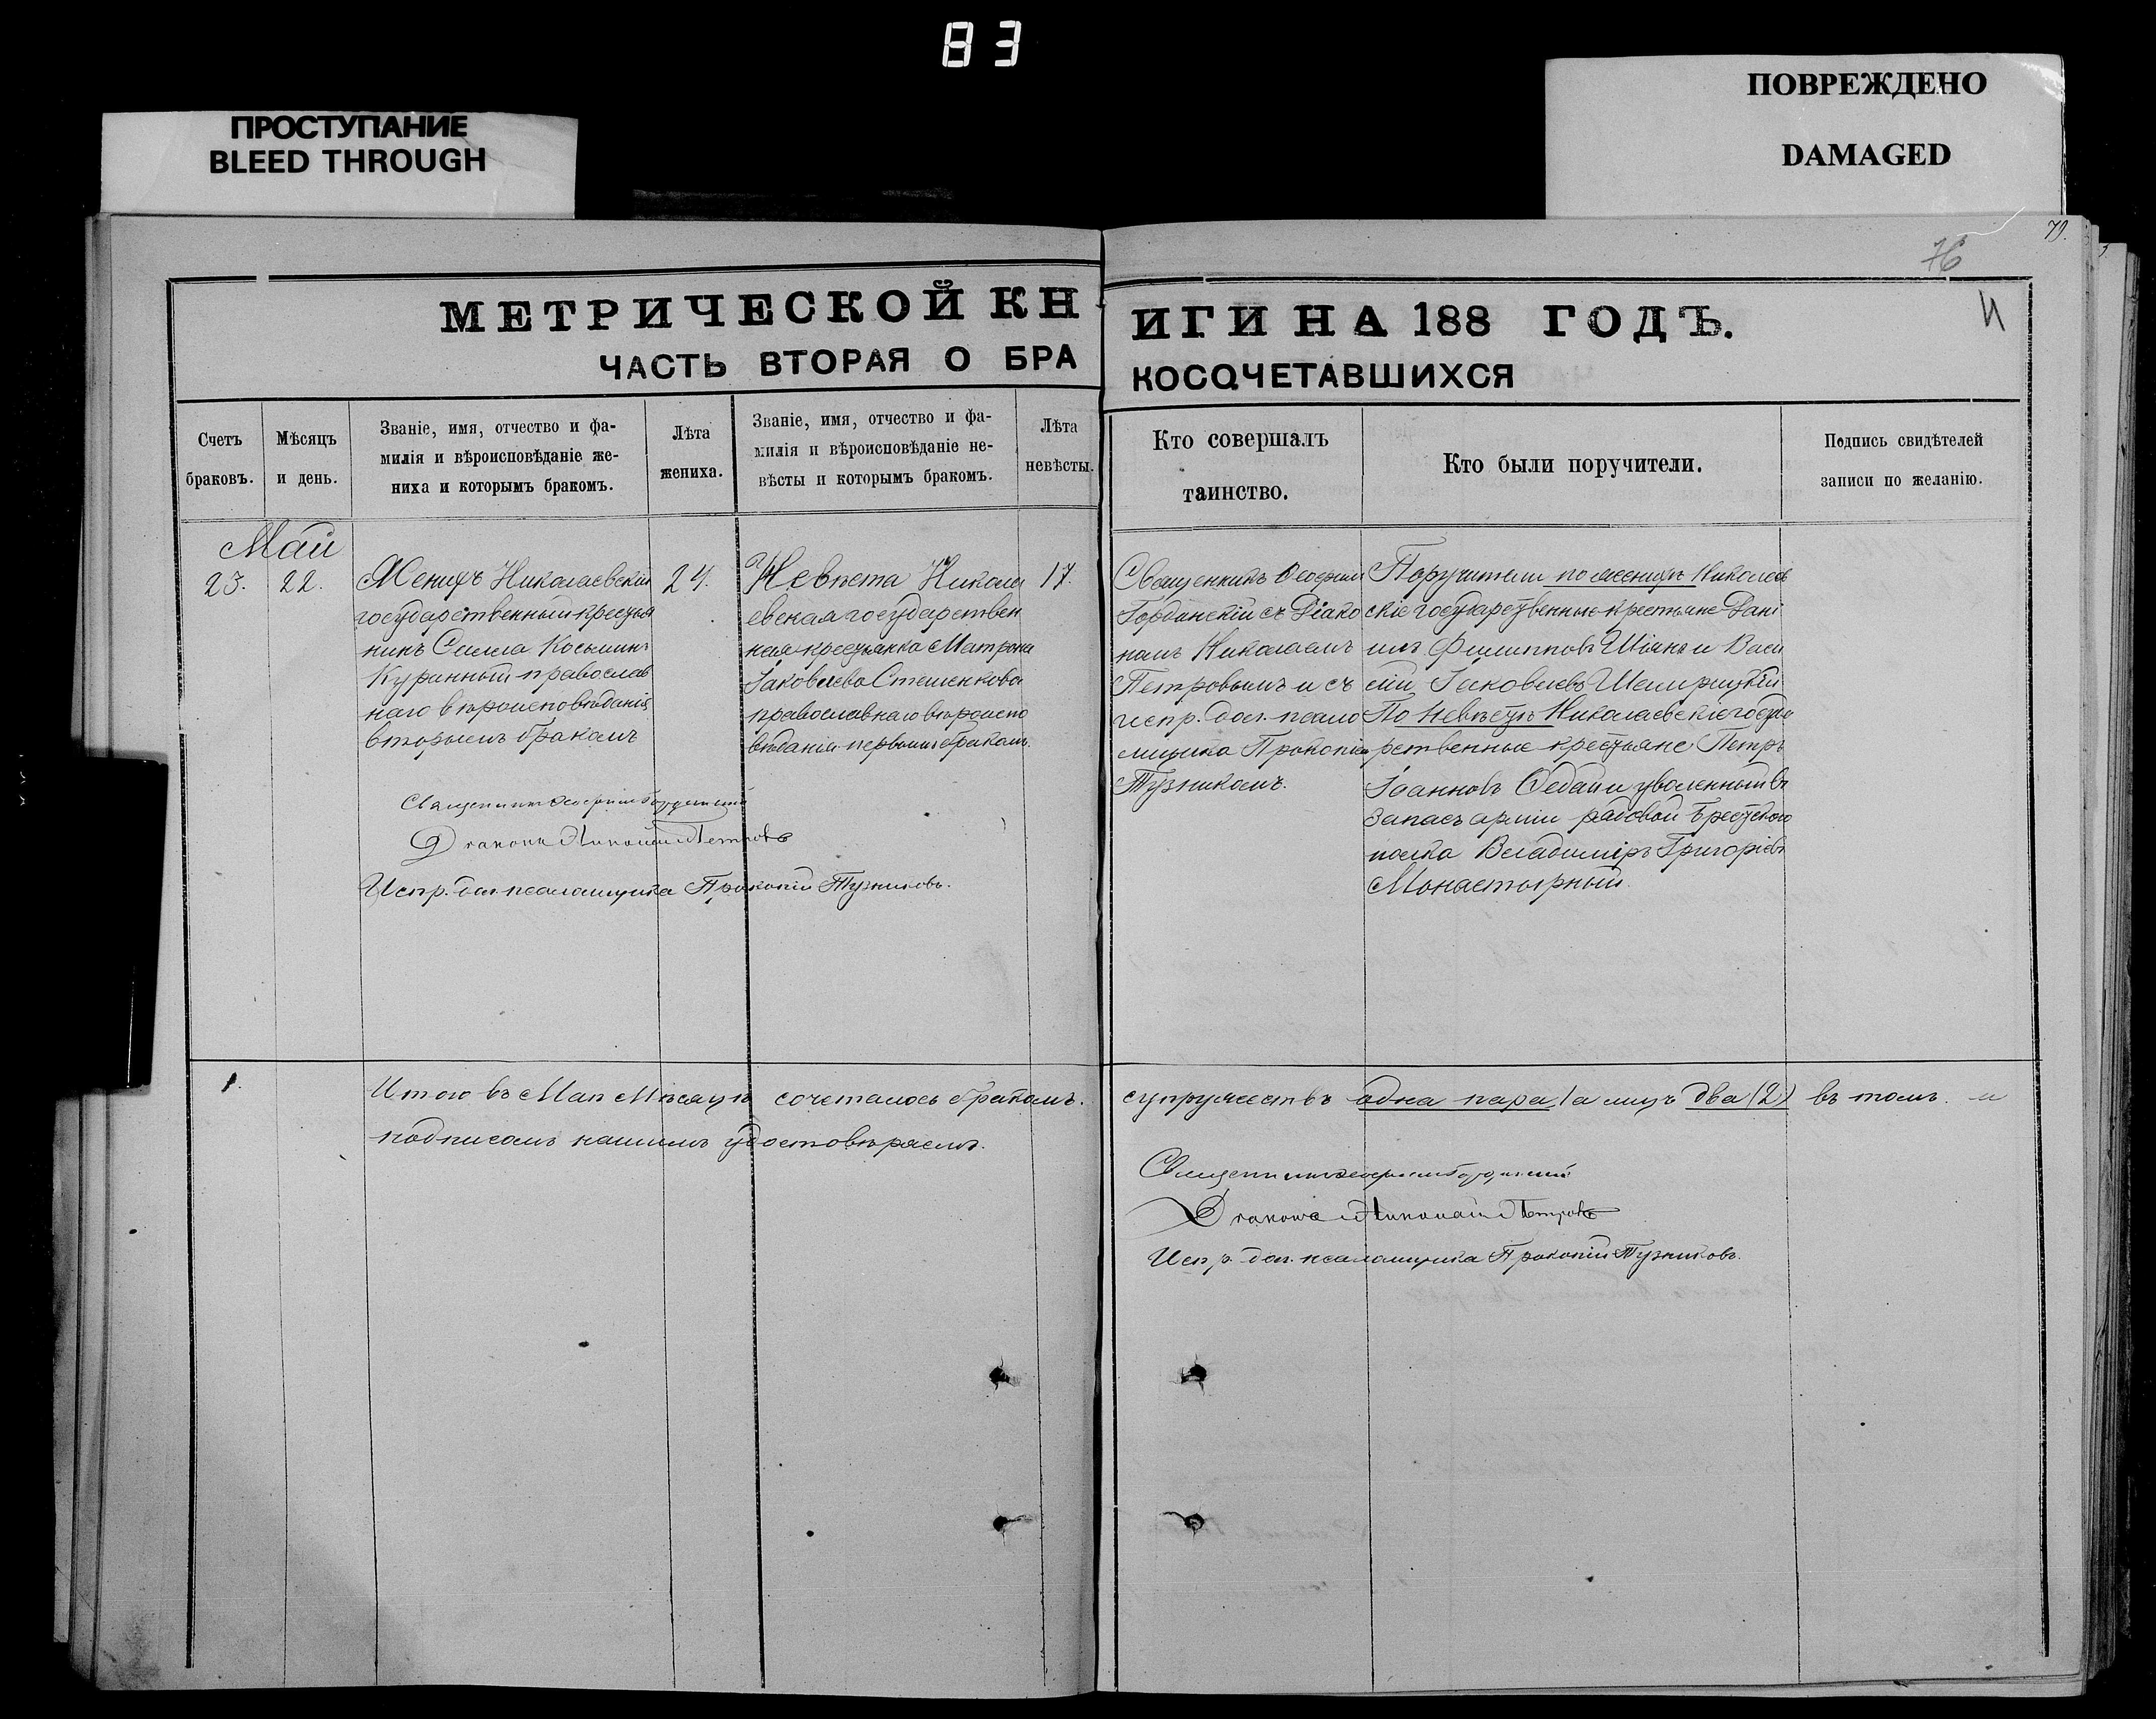 83
ПРОСТУПАНИЕ
BLEED THROUGH
ПОВРЕЖДЕНО
DAMAGED
79.
76
МЕТРИЧЕСКОЙ КН
ИГИ НА 188 ГОДЪ.
ЧАСТЬ ВТОРАЯ О БРА
КОСОЧЕТАВШИХСЯ
Счетъ
браковъ.
Мѣсяцъ
и день.
Званіе, имя, отчество и фа-
милія и вѣроисповѣданіе же-
ниха и которымъ бракомъ.
Лѣта
жениха.
Званіе, имя, отчество и фа-
милія и вѣроисповѣданіе не-
вѣсты и которымъ бракомъ.
Лѣта
невѣсты.
Кто совершалъ
таинство.
Кто были поручители.
Подпись свидѣтелей
записи по желанію.
Май
23.
22.
Женихъ Николаевскій
государственный крестья
нинъ Силла Косминъ
Куранный православ
наго вѣроисповѣданія
вторымъ бракомъ
24.
Невѣста Никола
евская государствен
ная крестьянка Матрона
Іаковлева Стешенкова
православнаго вѣроиспо
вѣданія первымъ бракомъ.
17.
Священникъ Ѳеофил
съ Діако
номъ Николаемъ
Петровымъ и съ
испр. дол. псало
мщика Прокопіемъ
Тузниковъ.
Поручители по женихѣ Николаев
скіе государственные крестьяне Дані
илъ Филипповъ и Васи
лій Іаковлевъ
По Невѣстѣ Николаевскіе госуда
рственные крестьяне Петръ
Іоанновъ Седай и уволенный въ
запасъ арміи рядовой Брестскаго
полка Владиміръ Григоріевъ
Монастырный.
Священникъ
Діаконъ Николай Петровъ
Испр. дол. псаломщика Прокопій Тузниковъ.
1.
Итого въ Маѣ Мѣсяцѣ сочеталось бракомъ.
супружествъ одна пара (а лицъ два (2) въ томъ. и
подписомъ нашимъ удостовѣряемъ.
Священникъ
Діаконъ Николай Петровъ
Испр. дол. псаломщика Прокопій Тузниковъ.